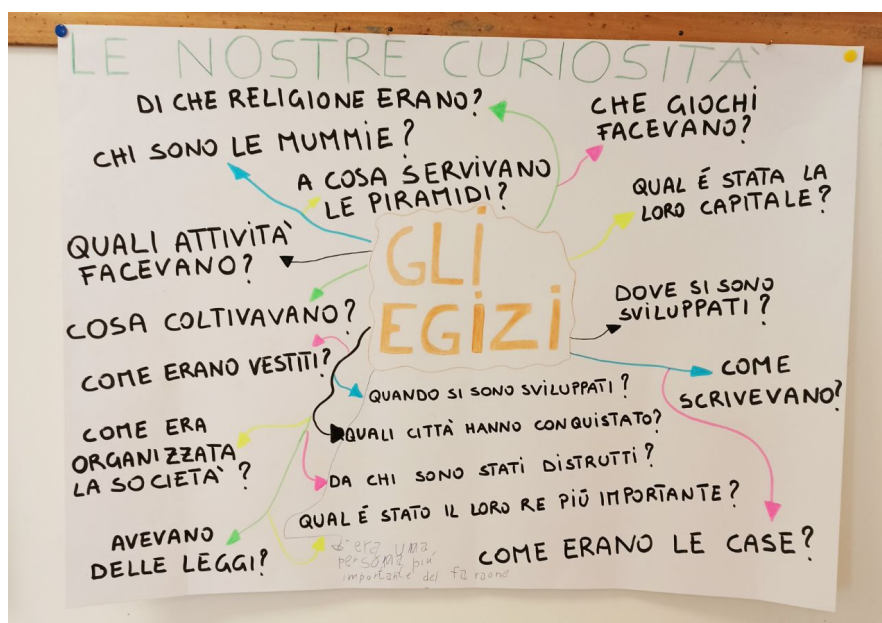 LE NOSTRE CURIOSITÀ
DI CHE RELIGIONE ERANO?
CHE GIOCHI
FACEVANO?
CHI SONO LE MUMMIE?
A COSA SERVIVANO
LE PIRAMIDI?
QUAL É STATA LA
LORO CAPITALE?
QUALI ATTIVITÀ
FACEVANO?
GLI
EGIZI
DOVE SI SONO
SVILUPPATI?
COSA COLTIVAVANO?
COME ERANO VESTITI?
COME
SCRIVEVANO?
QUANDO SI SONO SVILUPPATI?
QUALI CITTÀ HANNO CONQUISTATO?
COME ERA
ORGANIZZATA
LA SOCIETÀ?
DA CHI SONO STATI DISTRUTTI?
QUAL É STATO IL LORO RE PIÚ IMPORTANTE?
AVEVANO
DELLE LEGGI?
era una
persona più
importante del faraone
COME ERANO LE CASE?